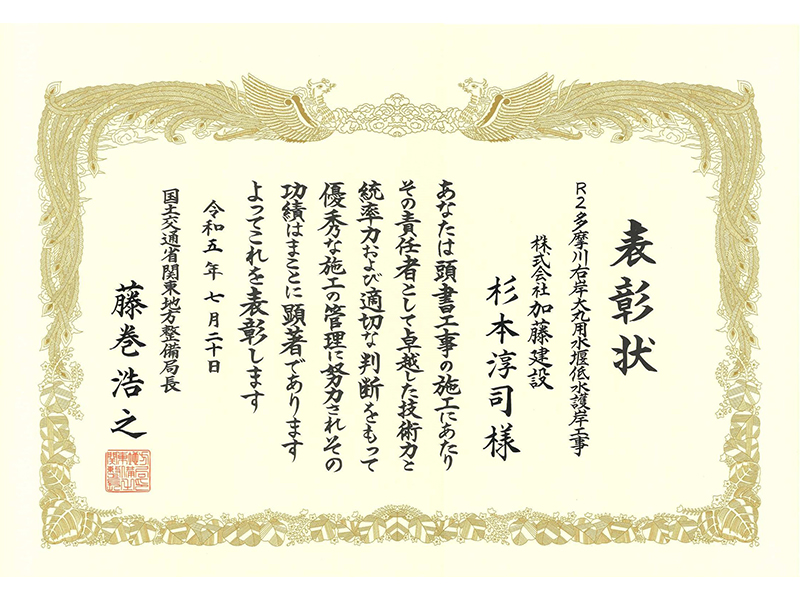 表彰状
R2多摩川右岸大丸用水堰低水護岸工事
株式会社加藤建設
杉本淳司様
あなたは頭書工事の施工にあたり
その責任者として卓越した技術力と
統率力および適切な判断をもって
優秀な施工の管理に努力されその
功績はまことに顕著であります
よってこれを表彰します
令和五年七月二十日
国土交通省関東地方整備局長
藤巻浩之